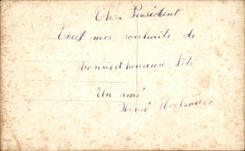 Cher Président
Tout mes souhaits de
bonne et heureuse fête
Un ami